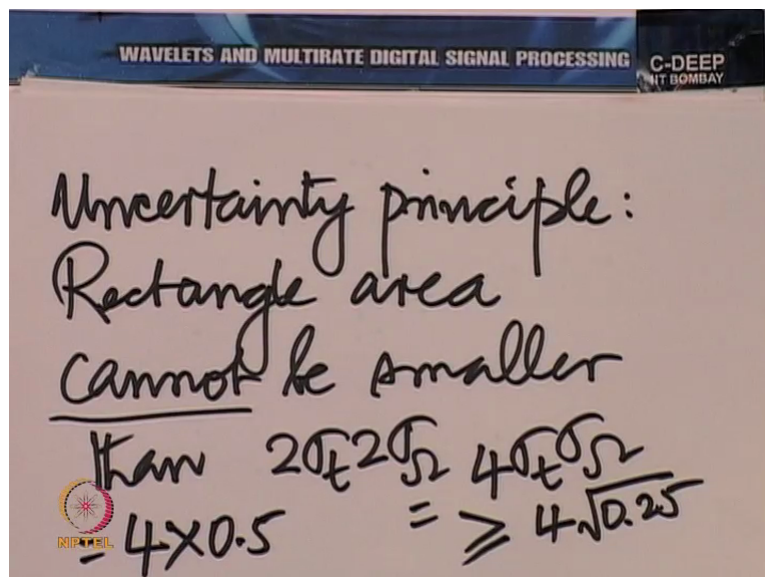 WAVELETS AND MULTIRATE DIGITAL SIGNAL PROCESSING
C-DEEP
IIT BOMBAY
Uncertainty principle:
Rectangle area
cannot be smaller
than 2σₜ2σ_Ω 4σₜσ_Ω
= 4×0.5 = ≥ 4√0.25
NPTEL